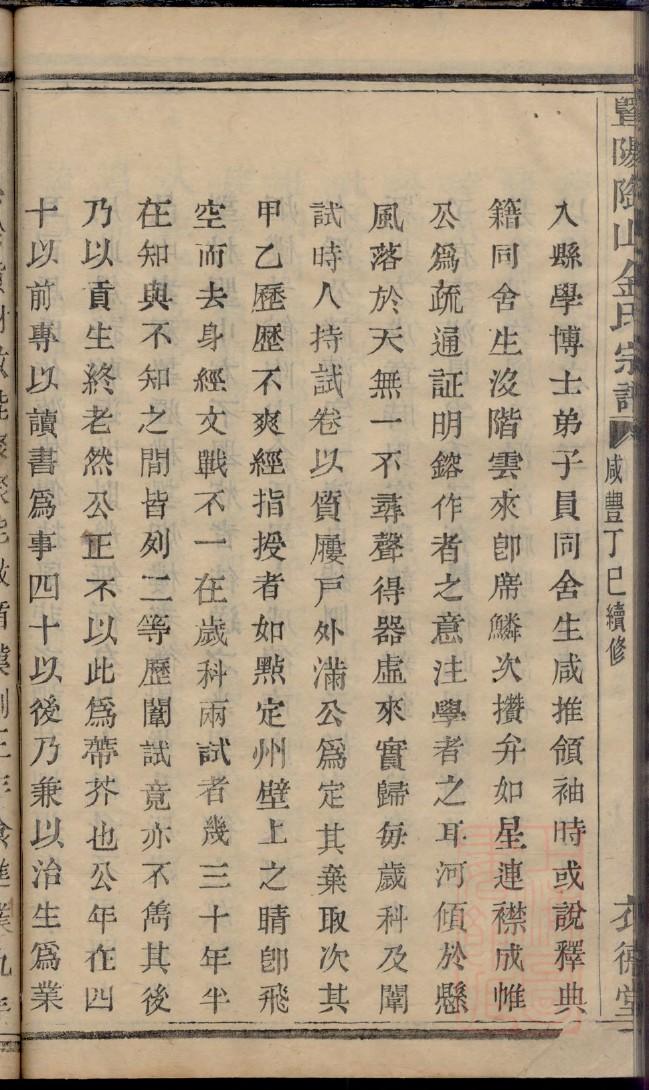 暨陽陶山金氏宗譜
咸豐丁巳續修
衣德堂
入縣學博士弟子員同舍生咸推領袖時或說釋典
籍同舍生沒階雲來卽席鱗次攢弁如星連襟成帷
公爲疏通証明鎔作者之意注學者之耳河傾於懸
風落於天無一不尋聲得器虛來實歸每歲科及闈
試時人持試卷以質屢戶外滿公爲定其棄取次其
甲乙歷歷不爽經指授者如點定州壁上之睛卽飛
空而去身經文戰不一在歲科兩試者幾三十年半
在知與不知之間皆列二等歷闈試竟亦不雋其後
乃以貢生終老然公正不以此爲蔕芥也公年在四
十以前專以讀書爲事四十以後乃兼以治生爲業